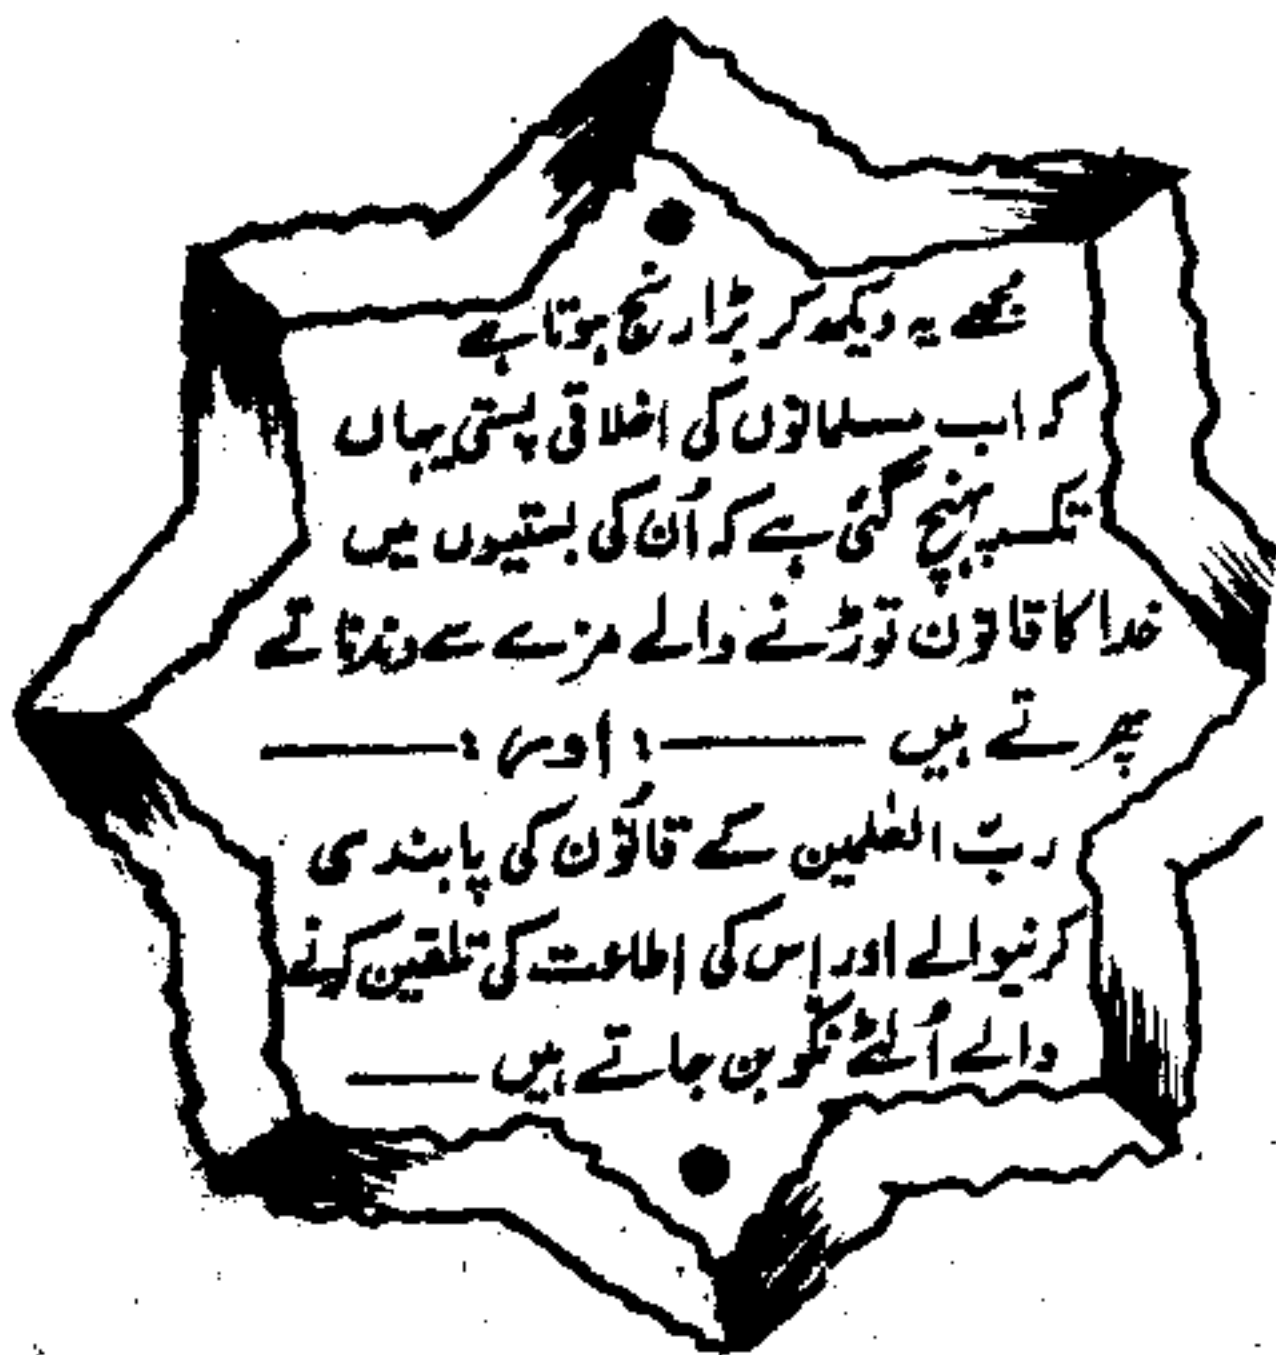 مجھے یہ دیکھ کر بڑا رنج ہوتا ہے
کہ اب مسلمانوں کی اخلاقی پستی یہاں
تک پہنچ گئی ہے کہ اُن کی بستیوں میں
خدا کا قانون توڑنے والے مزے سے دندناتے
پھرتے ہیں ——— ؛ اور ؛ ———
ربّ العٰلمین کے قانُون کی پابندی
کرنیوالے اور اِس کی اطاعت کی تلقین کرنے
والے اُلٹے نکّو بن جاتے ہیں ———